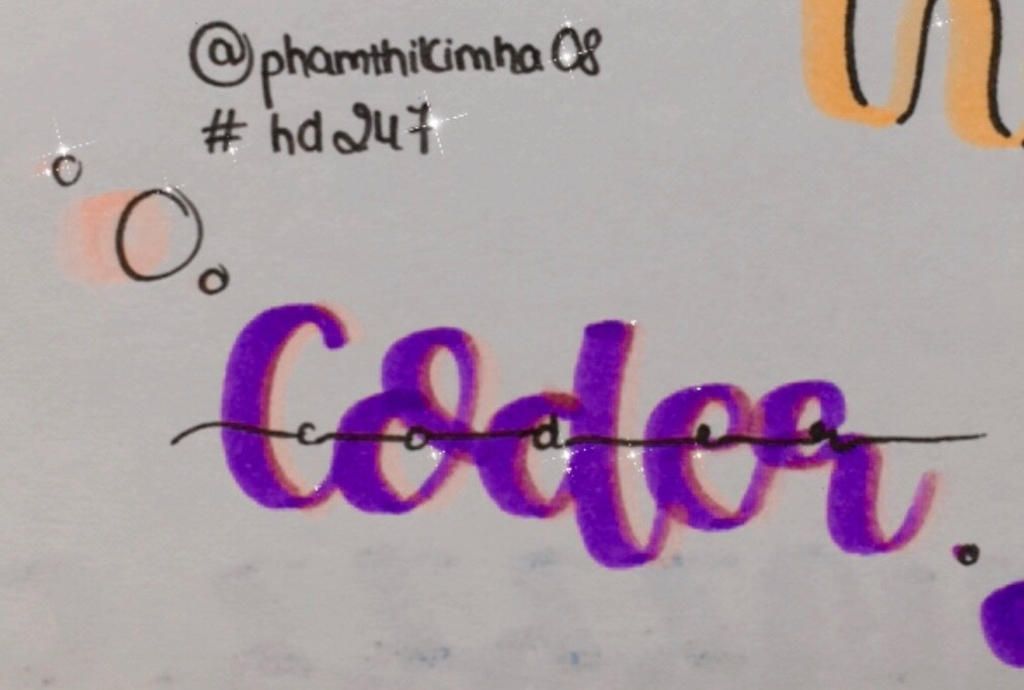 @phamthikimha08
#hd247
Coder
coder